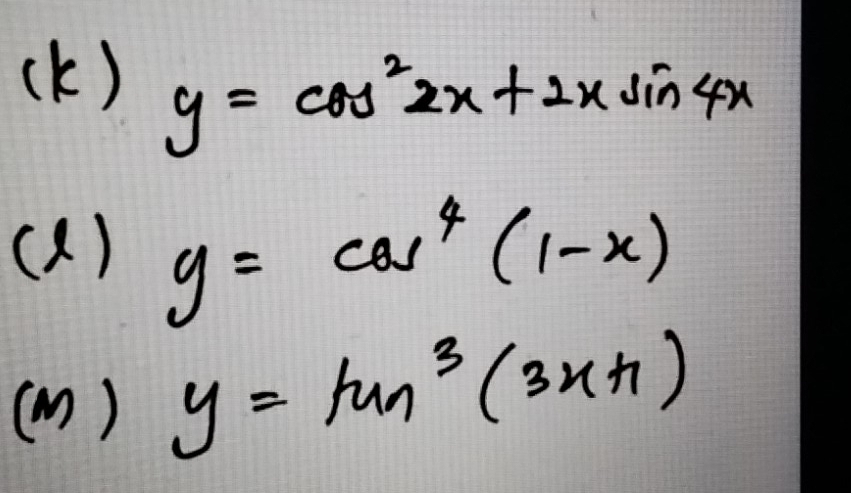 (k) y = cos²2x + 2x sin 4x
(l) y = cos⁴ (1-x)
(m) y = tan³ (3x+1)